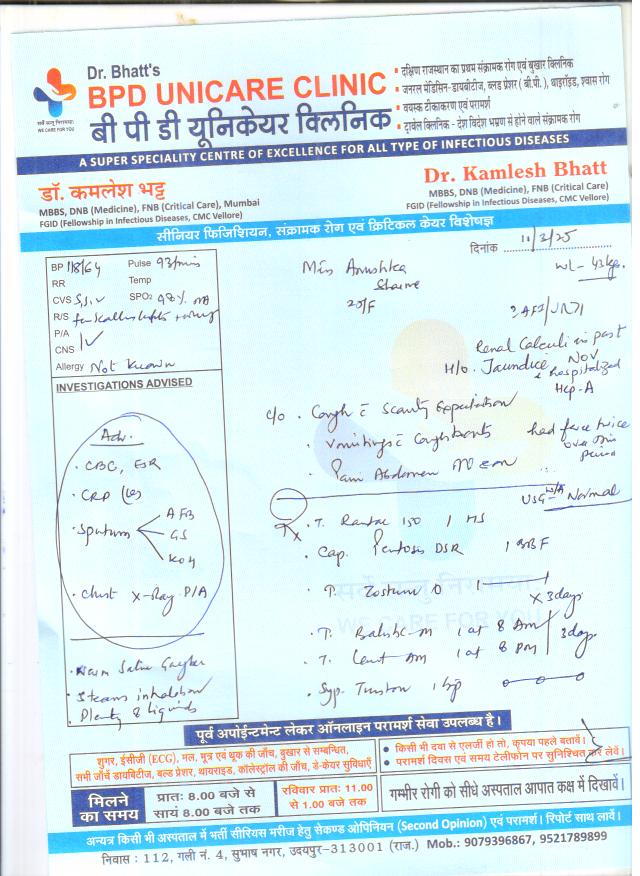 Dr. Bhatt's
BPD UNICARE CLINIC
बी पी डी यूनिकेयर क्लिनिक
सर्वे सन्तु निरामयाः
WE CARE FOR YOU
• दक्षिण राजस्थान का प्रथम संक्रामक रोग एवं बुखार क्लिनिक
• जनरल मेडिसिन-डायबीटीज, ब्लड प्रेशर (बी.पी.), थाइरॉइड, श्वास रोग
• वयस्क टीकाकरण एवं परामर्श
• ट्रावेल क्लिनिक - देश विदेश भ्रमण से होने वाले संक्रामक रोग
A SUPER SPECIALITY CENTRE OF EXCELLENCE FOR ALL TYPE OF INFECTIOUS DISEASES
डॉ. कमलेश भट्ट
MBBS, DNB (Medicine), FNB (Critical Care), Mumbai
FGID (Fellowship in Infectious Diseases, CMC Vellore)
Dr. Kamlesh Bhatt
MBBS, DNB (Medicine), FNB (Critical Care)
FGID (Fellowship in Infectious Diseases, CMC Vellore)
सीनियर फिजिशियन, संक्रामक रोग एवं क्रिटिकल केयर विशेषज्ञ
दिनांक 11/3/25
BP 118/64 Pulse 93/min
RR Temp
CVS S1S2 ✓ SPO2 98%
R/S
P/A
CNS
Allergy Not Known
Miss Anushka
Sharma
20/F
Wt- 43 kgs.
Renal Calculi in past
H/o. Jaundice NOV
hospitalized
Hep-A
C/o • Cough c̄ Scanty Expectoration
Vomitings c̄ Cough had fever twice
over this
period
• Pain Abdomen
USG W/A - Normal
INVESTIGATIONS ADVISED
Adv.
• CBC, ESR
• CRP
• Sputum AFB
GS
KOH
• Chest X-Ray P/A
• Warm Saline Gargles
• Steam inhalation
• Plenty of liquids
Rx
• T. Rantac 150 1 HS
• Cap. DSR 1 BBF
• T. Zostum O 1 1 x 3 days
• T. M 1 at 8 AM
3 days
• T. AM 1 at 8 PM
• Syp. 1 tsp
पूर्व अपोईन्टमेन्ट लेकर ऑनलाइन परामर्श सेवा उपलब्ध है।
शुगर, ईसीजी (ECG), मल, मूत्र एवं थूक की जाँच, बुखार से सम्बन्धित,
सभी जाँचें डायबिटीज, ब्लड प्रेशर, थायराइड, कोलेस्ट्रॉल की जाँच, डे-केयर सुविधाएँ
• किसी भी दवा से एलर्जी हो तो, कृपया पहले बतावें।
• परामर्श दिवस एवं समय टेलीफोन पर सुनिश्चित कर लेवें।
मिलने का समय
प्रातः 8.00 बजे से
सायं 8.00 बजे तक
रविवार प्रातः 11.00
से 1.00 बजे तक
गम्भीर रोगी को सीधे अस्पताल आपात कक्ष में दिखावें।
अन्यत्र किसी भी अस्पताल में भर्ती सीरियस मरीज हेतु सेकण्ड ओपिनियन (Second Opinion) एवं परामर्श। रिपोर्ट साथ लावें।
निवास : 112, गली नं. 4, सुभाष नगर, उदयपुर-313001 (राज.) Mob.: 9079396867, 9521789899